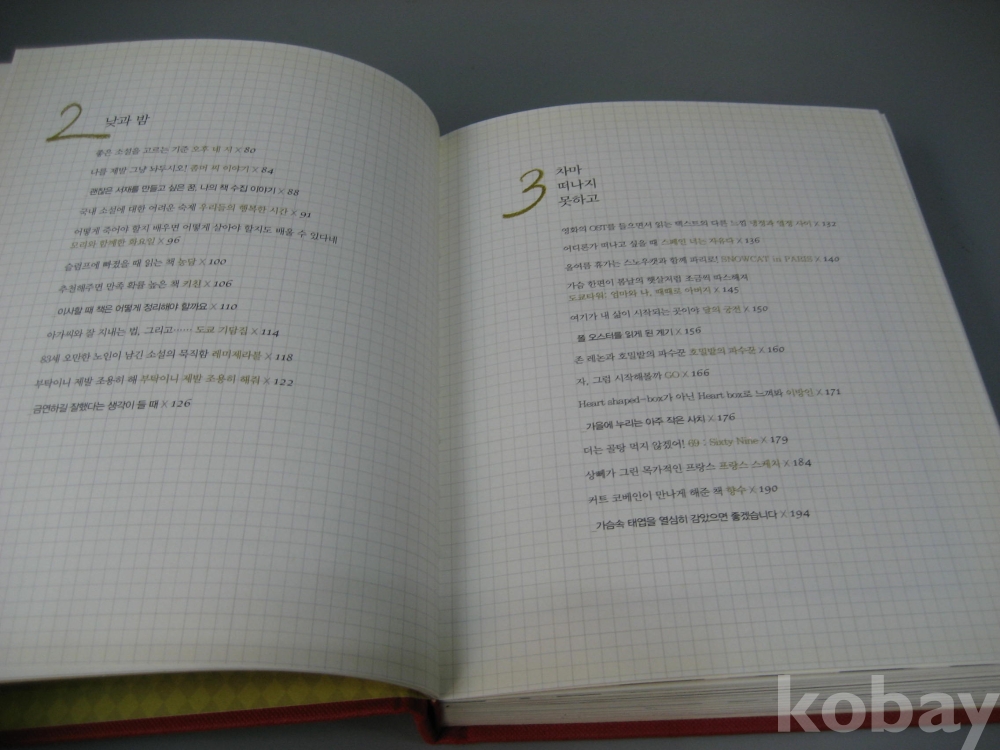 2 낮과 밤
좋은 소설을 고르는 기준 오후 네 시 X 80
나를 제발 그냥 놔두시오! 좀머 씨 이야기 X 84
괜찮은 서재를 만들고 싶은 꿈, 나의 책 수집 이야기 X 88
국내 소설에 대한 어려운 숙제 우리들의 행복한 시간 X 91
어떻게 죽어야 할지 배우면 어떻게 살아야 할지도 배울 수 있다네
모리와 함께한 화요일 X 96
슬럼프에 빠졌을 때 읽는 책 농담 X 100
추천해주면 만족 확률 높은 책 키친 X 106
이사할 때 책은 어떻게 정리해야 할까요 X 110
아가씨와 잘 지내는 법, 그리고…… 도쿄 기담집 X 114
83세 오만한 노인이 남긴 소설의 묵직함 레미제라블 X 118
부탁이니 제발 조용히 해 부탁이니 제발 조용히 해줘 X 122
금연하길 잘했다는 생각이 들 때 X 126
3 차마
떠나지
못하고
영화의 OST를 들으면서 읽는 텍스트의 다른 느낌 냉정과 열정 사이 X 132
어디론가 떠나고 싶을 때 스페인 너는 자유다 X 136
올여름 휴가는 스노우캣과 함께 파리로! SNOWCAT in PARIS X 140
가슴 한편이 봄날의 햇살처럼 조금씩 따스해져
도쿄타워: 엄마와 나, 때때로 아버지 X 145
여기가 내 삶이 시작되는 곳이야 달의 궁전 X 150
폴 오스터를 읽게 된 계기 X 156
존 레논과 호밀밭의 파수꾼 호밀밭의 파수꾼 X 160
자, 그럼 시작해볼까 GO X 166
Heart shaped-box가 아닌 Heart box로 느껴봐 이방인 X 171
가을에 누리는 아주 작은 사치 X 176
더는 골탕 먹지 않겠어! 69 : Sixty Nine X 179
상뻬가 그린 목가적인 프랑스 프랑스 스케치 X 184
커트 코베인이 만나게 해준 책 향수 X 190
가슴속 태엽을 열심히 감았으면 좋겠습니다 X 194
kobay